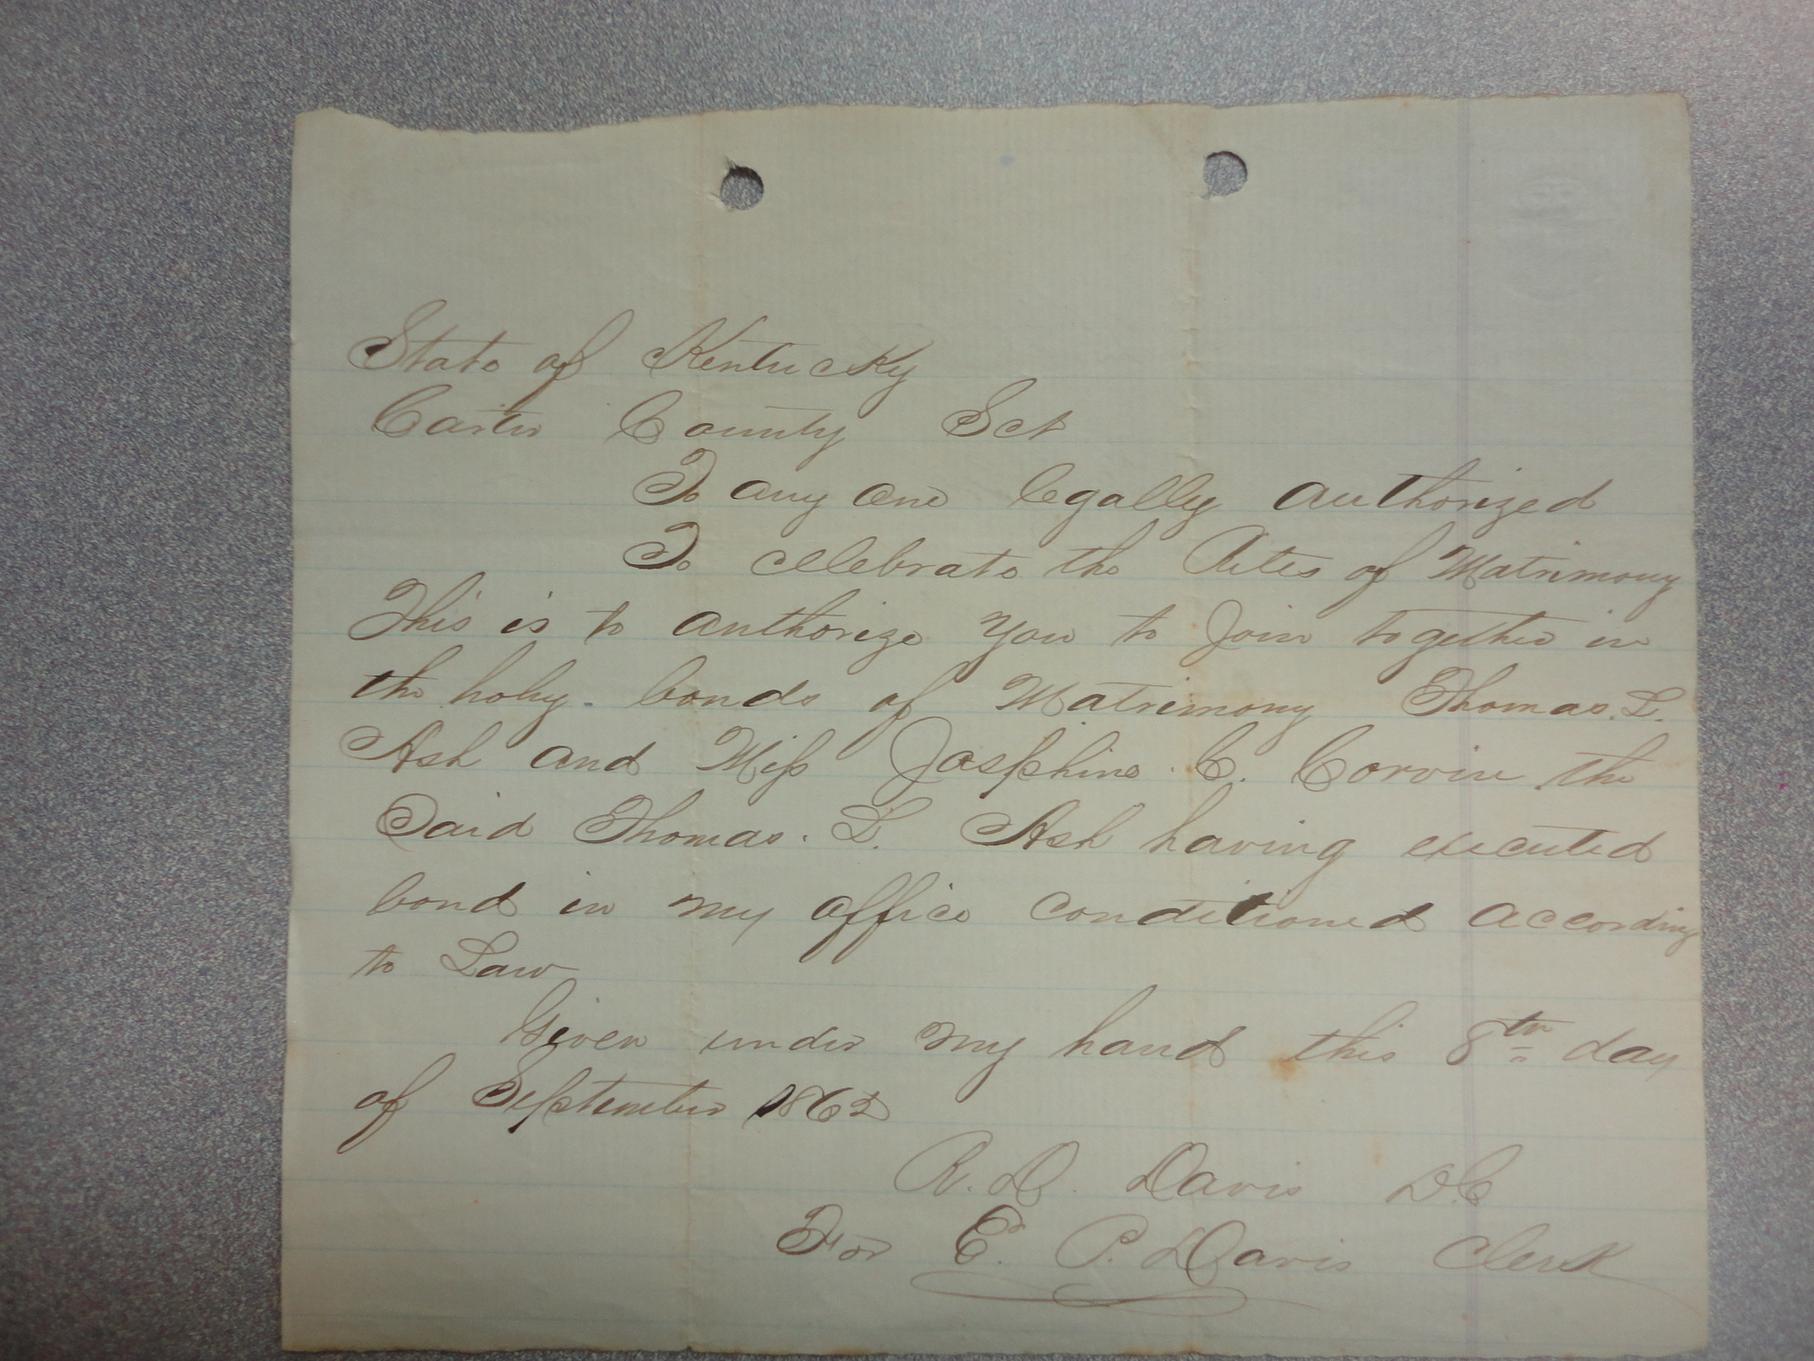 State of Kentucky
Carter County Sct
To any one legally authorized
To celebrate the Rites of Matrimony
This is to authorize you to Join together in
the holy bonds of Matrimony Thomas. L.
Ash and Miss Josephine. C. Corvin the
Said Thomas. L. Ash having executed
bond in my office conditioned according
to Law
Given under my hand this 8th day
of September 1862
R. D. Davis D.C
For E. P. Davis Clerk